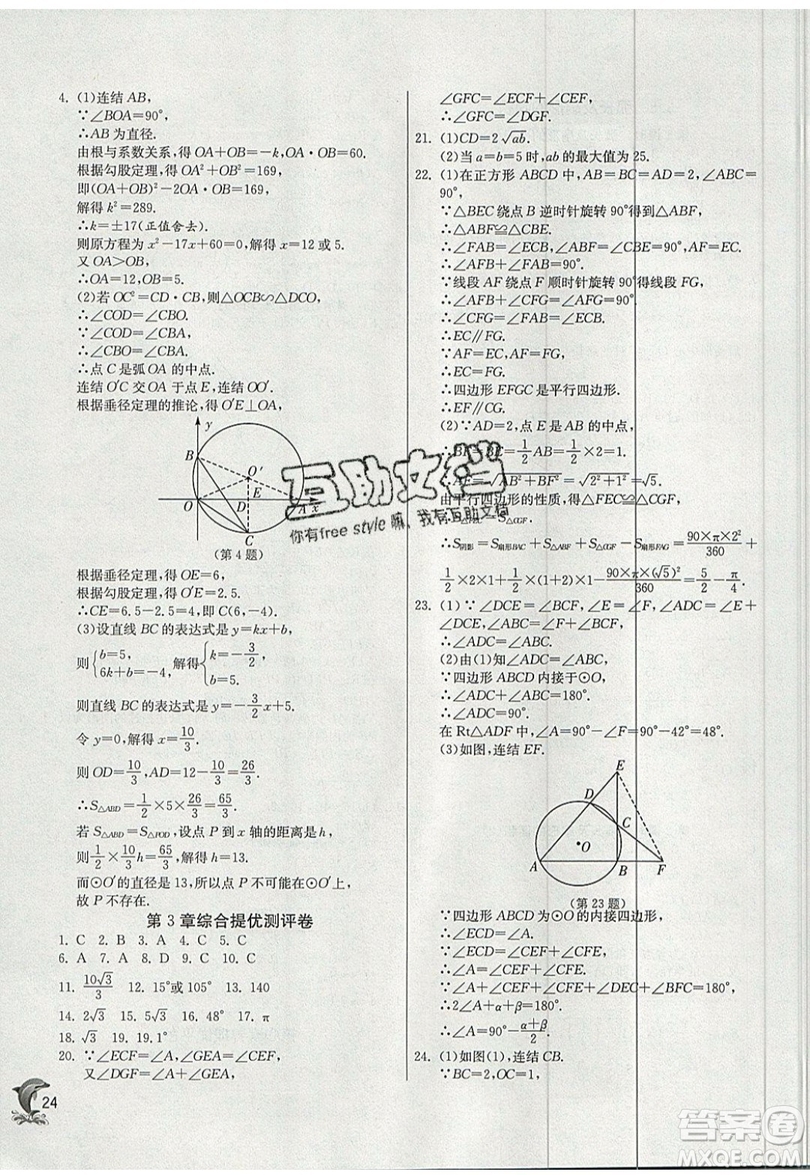 4. (1)连结 AB,
∵∠BOA=90°,
∴AB 为直径.
由根与系数关系,得 OA+OB=-k,OA·OB=60.
根据勾股定理,得 OA²+OB²=169,
即(OA+OB)²-2OA·OB=169,
解得 k²=289.
∴k=±17(正值舍去).
则原方程为 x²-17x+60=0,解得 x=12或 5.
又 OA>OB,
∴OA=12,OB=5.
(2)若 OC²=CD·CB,则△OCB∽△DCO,
∴∠COD=∠CBO.
∵∠COD=∠CBA,
∴∠CBO=∠CBA.
∴点 C 是弧 OA 的中点.
连结 O′C 交 OA 于点 E,连结 OO′.
根据垂径定理的推论,得 O′E⊥OA,
y
B
O′
E
O
D
A
x
C
(第 4 题)
根据垂径定理,得 OE=6,
根据勾股定理,得 O′E=2.5,
∴CE=6.5-2.5=4,即 C(6,-4).
(3)设直线 BC 的表达式是 y=kx+b,
则{b=5, 6k+b=-4, 解得{k=-3/2, b=5.
则直线 BC 的表达式是 y=-3/2x+5.
令 y=0,解得 x=10/3.
则 OD=10/3,AD=12-10/3=26/3.
∴S△ABD=1/2×5×26/3=65/3.
若 S△ABD=S△POD,设点 P 到 x 轴的距离是 h,
则1/2×10/3h=65/3,解得 h=13.
而⊙O′的直径是 13,所以点 P不可能在⊙O′上,
故 P不存在.
第 3 章综合提优测评卷
1. C 2. A 3. C 4. B 5. C
6. A 7. A 8. D 9. C 10. C
11. 10√3/3 12. 15°或105° 13. 140
14. 2√3 15. 5√3 16. 48° 17. π
18. √3 19. 19.1°
20. ∵∠ECF=∠A,∠GEA=∠CEF,
又∠DGF=∠A+∠GEA,
24
∠GFC=∠ECF+∠CEF,
∴∠GFC=∠DGF.
21. (1)CD=2√ab.
(2)当 a=b=5 时,ab 的最大值为 25.
22. (1)在正方形 ABCD 中,AB=BC=AD=2,∠ABC=
90°,
∵△BEC 绕点 B 逆时针旋转 90°得到△ABF,
∴△ABF≌△CBE.
∴∠FAB=∠ECB,∠ABF=∠CBE=90°,AF=EC.
∴∠AFB+∠FAB=90°.
∵线段 AF 绕点 F 顺时针旋转 90°得线段 FG,
∴∠AFB+∠CFG=∠AFG=90°.
∴∠CFG=∠FAB=∠ECB.
∴EC∥FG.
∵AF=EC,AF=FG,
∴EC=FG.
∴四边形 EFGC 是平行四边形.
∴EF∥CG.
(2)∵AD=2,点 E 是 AB 的中点,
∴FB=BE=1/2AB=1/2×2=1.
∴AF=√AB²+BF²=√2²+1²=√5.
由平行四边形的性质,得△FEC≌△CGF.
∴S△FEC=S△CGF.
∴S阴影=S扇形BAC+S△ABF+S△CGF-S扇形FAG=90×π×2²/360+
1/2×2×1+1/2×(1+2)×1-90×π×(√5)²/360=5/2-π/4.
23. (1)∵∠DCE=∠BCF,∠E=∠F,∠ADC=∠E+
∠DCE,∠ABC=∠F+∠BCF,
∴∠ADC=∠ABC.
(2)由(1)知∠ADC=∠ABC,
∵四边形 ABCD 内接于⊙O,
∴∠ADC+∠ABC=180°.
∴∠ADC=90°.
在 Rt△ADF 中,∠A=90°-∠F=90°-42°=48°.
(3)如图,连结 EF.
E
D
C
O
A
B
F
(第 23 题)
∵四边形 ABCD 为⊙O 的内接四边形,
∴∠ECD=∠A.
∵∠ECD=∠CEF+∠CFE,
∴∠A=∠CEF+∠CFE.
∵∠A+∠CEF+∠CFE+∠DEC+∠BFC=180°,
∴2∠A+α+β=180°.
∴∠A=90°-α+β/2.
24. (1)如图(1),连结 CB.
∵BC=2,OC=1,
互助文档
你有free style嘛,我有互助文档
答案圈
MXQE.COM